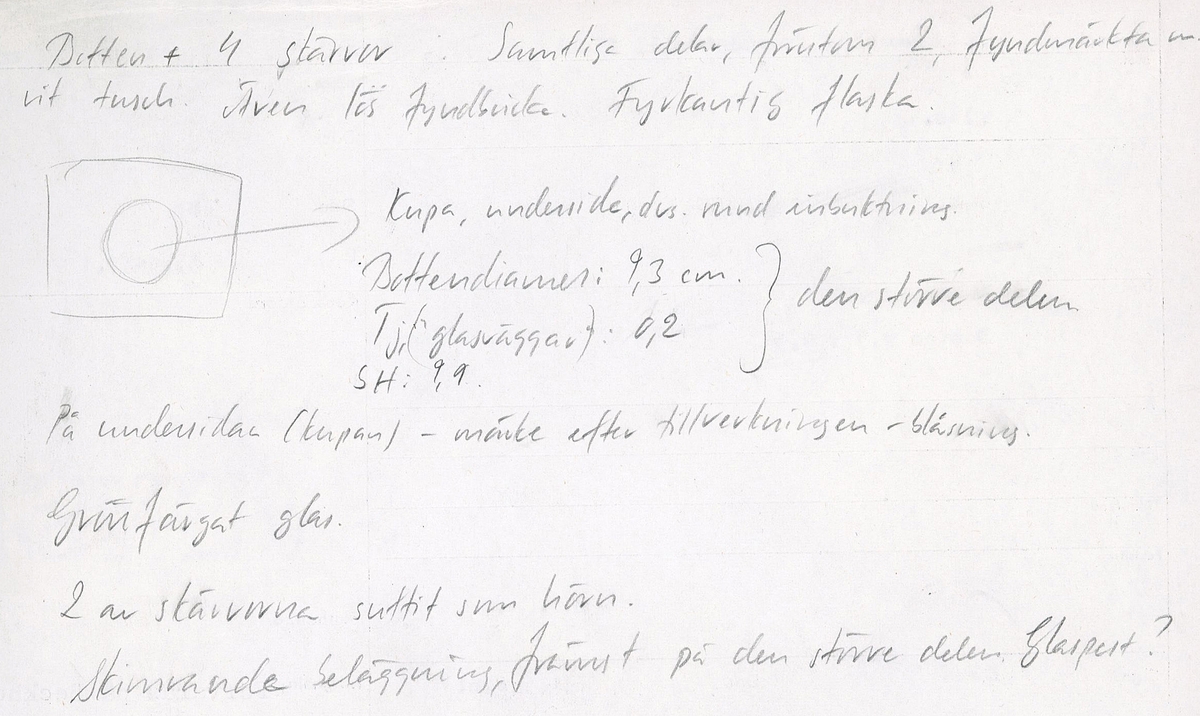 Botten + 4 skärvor. Samtliga delar, förutom 2, fyndmärkta m.
vit tusch. Även lös fyndbricka. Fyrkantig flaska.
Kupa, undersida, dvs. rund inbuktning.
Bottendiameter: 9,3 cm.
Tj. (glasväggar): 0,2
den större delen
SH: 9,9.
På undersidan (kupan) - märke efter tillverkningen - blåsning.
Grönfärgat glas.
2 av skärvorna suttit som hörn.
Skimrande beläggning, främst på den större delen. Glaspest?